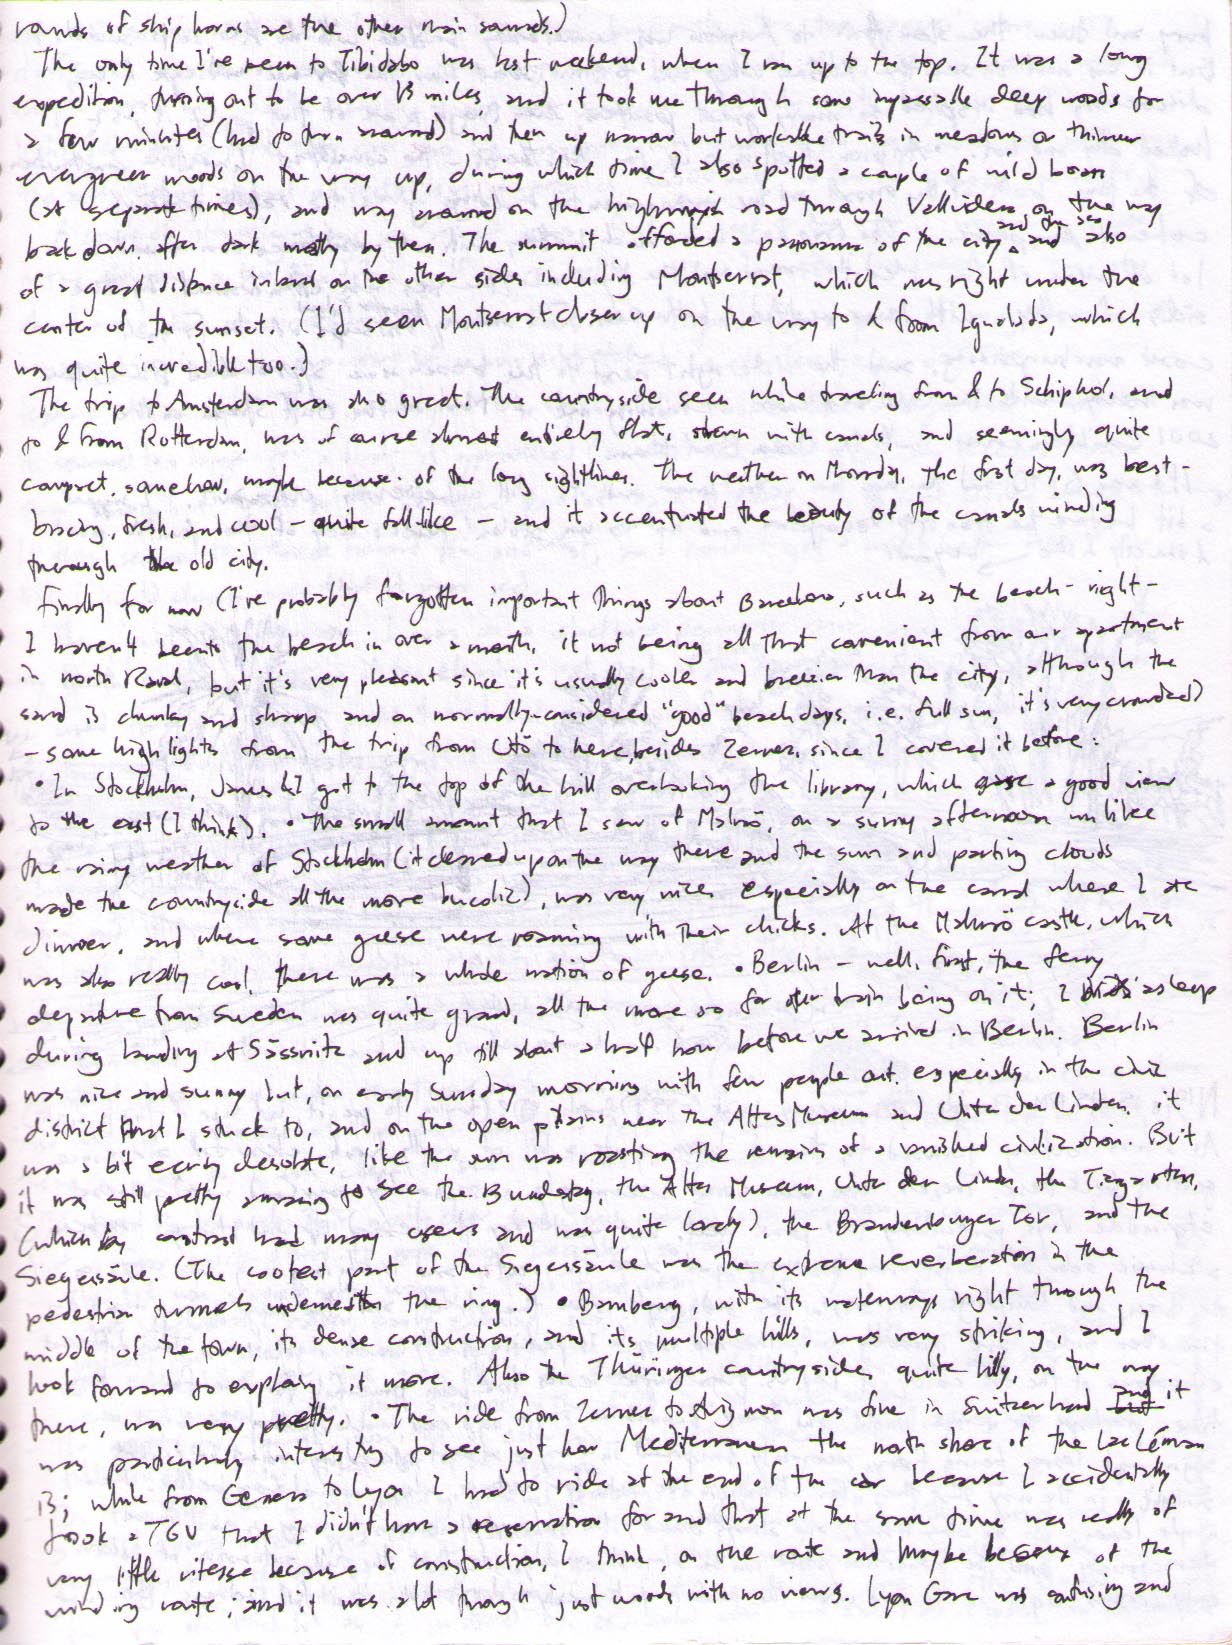 rounds of ship horns are the other main sounds.)
The only time I've been to Tibidabo was last weekend, when I ran up to the top. It was a long
expedition, turning out to be over 13 miles, and it took me through some impassable deep woods for
a few minutes (had to turn around) and then up narrow but workable trails in meadows or thinner
evergreen woods on the way up, during which time I also spotted a couple of wild boars
(at separate times), and way around on the highway road through Vallvidera on the way
back down, after dark mostly by then. The summit afforded a panorama of the city and the sea and also
of a great distance inland on the other sides including Montserrat, which was right under the
center of the sunset. (I'd seen Montserrat closer up on the way to & from Igualada, which
was quite incredible too.)
The trip to Amsterdam was also great. The countryside seen while traveling from & to Schiphol, and
to & from Rotterdam, was of course almost entirely flat, strewn with canals, and seemingly quite
compact, somehow, maybe because of the long sightlines. The weather on Monday, the first day, was best -
bracing, fresh, and cool - quite fall-like - and it accentuated the beauty of the canals winding
through the old city.
Finally for now (I've probably forgotten important things about Barcelona, such as the beach - right -
I haven't been to the beach in over a month, it not being all that convenient from our apartment
in north Raval, but it's very pleasant since it's usually cooler and breezier than the city, although the
sand is chunky and sharp and on normally-considered "good" beach days, i.e. full sun, it's very crowded)
- some highlights from the trip from Utö to here, besides Zernez, since I covered it before:
• In Stockholm, James & I got to the top of the hill overlooking the library, which gave a good view
to the east (I think). • The small amount that I saw of Malmö, on a sunny afternoon unlike
the rainy weather of Stockholm (it cleared up on the way there and the sun and parting clouds
made the countryside all the more bucolic), was very nice, especially on the canal where I ate
dinner, and where some geese were roaming with their chicks. At the Malmö castle, which
was also really cool, there was a whole nation of geese. • Berlin - well, first, the ferry
departure from Sweden was quite grand, all the more so for our train being on it; I was asleep
during landing at Sassnitz and up till about a half hour before we arrived in Berlin. Berlin
was nice and sunny but, on early Sunday morning with few people out, especially in the civic
district that I stuck to, and on the open plains near the Altes Museum and Unter den Linden, it
was a bit eerily desolate, like the sun was roasting the remains of a vanished civilization. But
it was still pretty amazing to see the Bundestag, the Altes Museum, Unter den Linden, the Tiergarten,
(which by contrast had many users and was quite lovely), the Brandenburger Tor, and the
Siegessäule. (The coolest part of the Siegessäule was the extreme reverberation in the
pedestrian tunnels underneath the ring.) • Bamberg, with its waterways right through the
middle of the town, its dense construction, and its multiple hills, was very striking, and I
look forward to exploring it more. Also the Thüringer countryside, quite hilly, on the way
there, was very pretty. • The ride from Zernez to Avignon was fine in Switzerland and it
was particularly interesting to see just how Mediterranean the north shore of the Lac Léman
is; while from Geneva to Lyon I had to ride at the end of the car because I accidentally
took a TGV that I didn't have a reservation for and that at the same time was really of
very little vitesse because of construction, I think, on the route and maybe because of the
winding route; and it was a lot through just woods with no views. Lyon Gare was confusing and